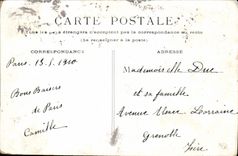 CARTE POSTALE
Tous les pays étrangers n'acceptent pas la correspondance au recto
(Se renseigner à la poste)
CORRESPONDANCE
ADRESSE
Paris. 15.5.1910
Bons Baisers
de Paris
Camille
Mademoiselle Duc
et sa famille
Avenue Alsace Lorraine
Grenoble
Isère